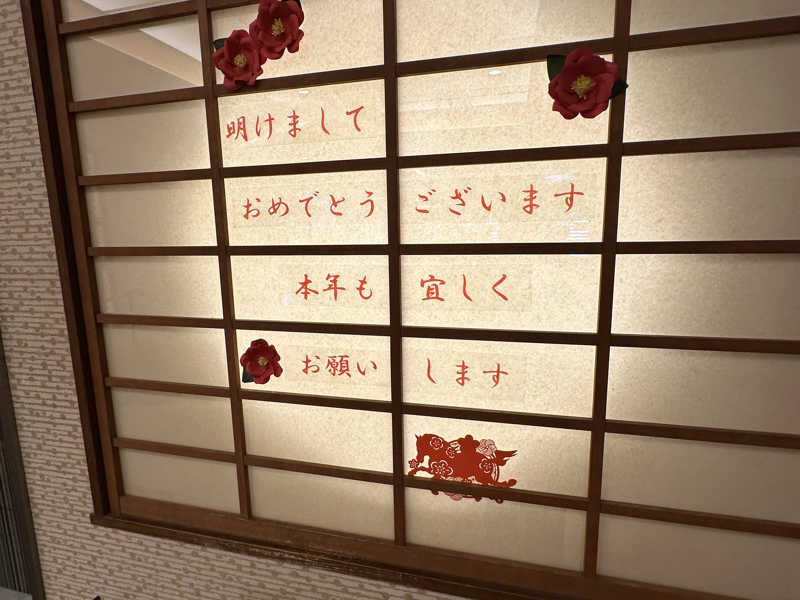 明けまして
おめでとうございます
本年も宜しく
お願いします